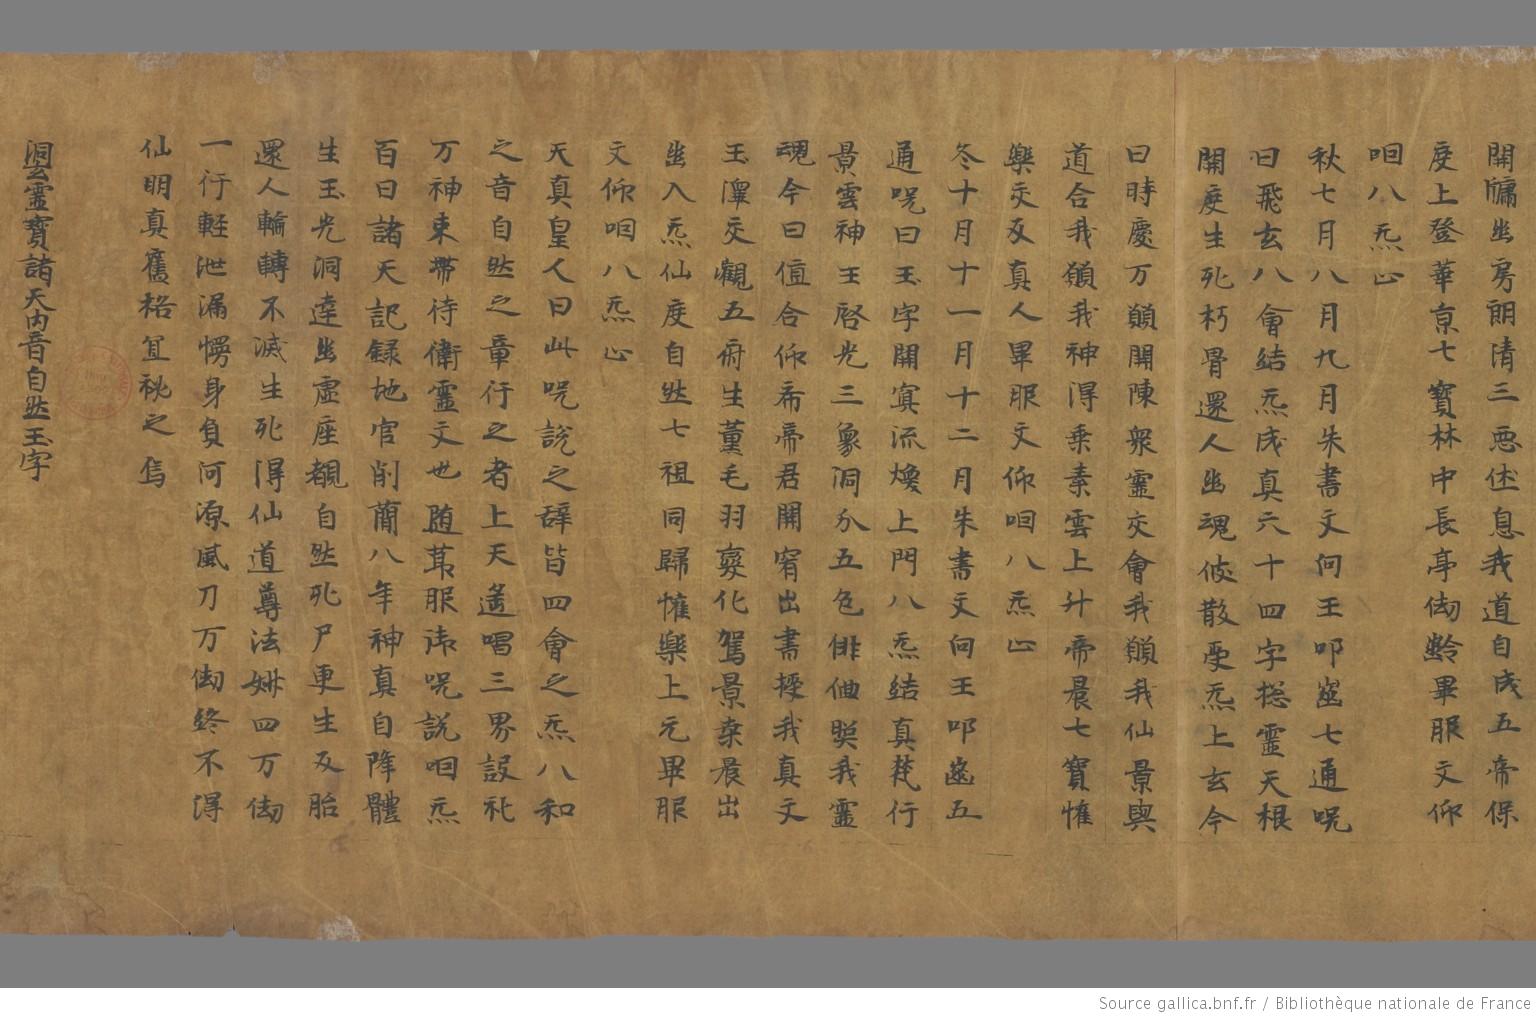 開牗幽房朗清三惡伏息我道自成五帝保
度上登華京七寶林中長亭劫齡畢服文仰
咽八炁止
秋七月八月九月朱書文向王叩齒七通呪
曰飛玄八會結炁成真六十四字捴靈天根
開度生死朽骨還人幽魂彼散受炁上玄今
日時慶万願開陳衆靈交會我願我仙景輿
道合我願我神得乗素雲上升帝晨七寶惟
樂交友真人畢服文仰咽八炁止
冬十月十一月十二月朱書文向王叩齒五
通呪曰玉字開寘流煥上門八炁結真梵行
景雲神王啓光三象洞分五色俳佪與我靈
魂今日值合仰希帝君開窮出書授我真文
玉澤交觀五府生薰毛羽奕化駕景桒晨出
幽入炁仙度自然七祖同歸惟樂上元畢服
文仰咽八炁止
天真皇人曰此呪說之辞皆四會之炁八和
之音自然之章行之者上天遙唱三界設礼
万神束帶侍衛靈文也随其服御呪說咽炁
百日諸天記録地官削蕳八年神真自降體
生玉光洞達幽虛座覩自然死尸更生反胎
還人輪轉不滅生死得仙道尊法妙四万劫
一行輕泄漏愣身負河源風刀万劫終不得
仙明真舊格冝祕之焉
洞玄靈寶諸天内音自然玉字
Source gallica.bnf.fr / Bibliothèque nationale de France